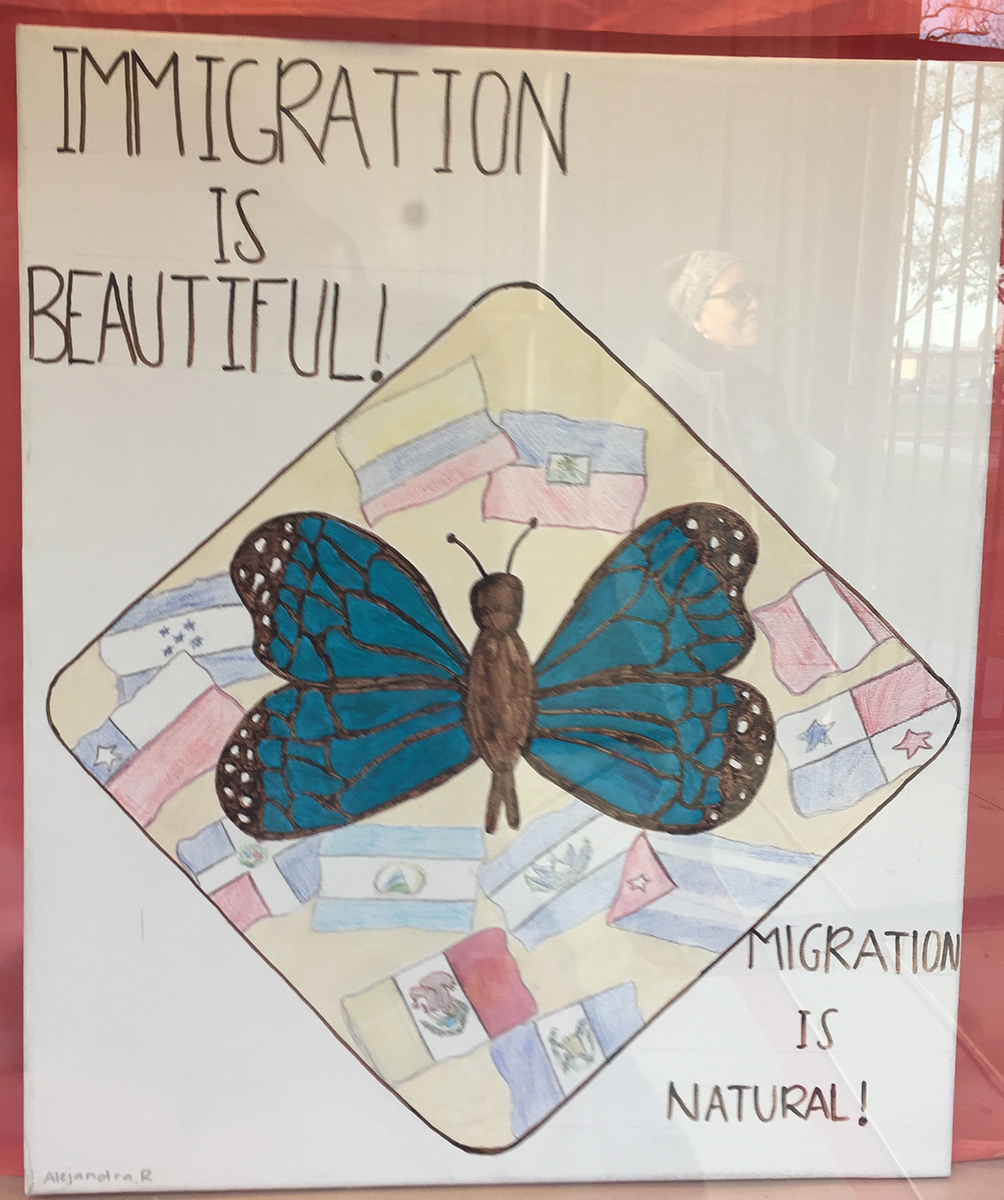 IMMIGRATION
IS
BEAUTIFUL!
MIGRATION
IS
NATURAL!
Alejandra.R